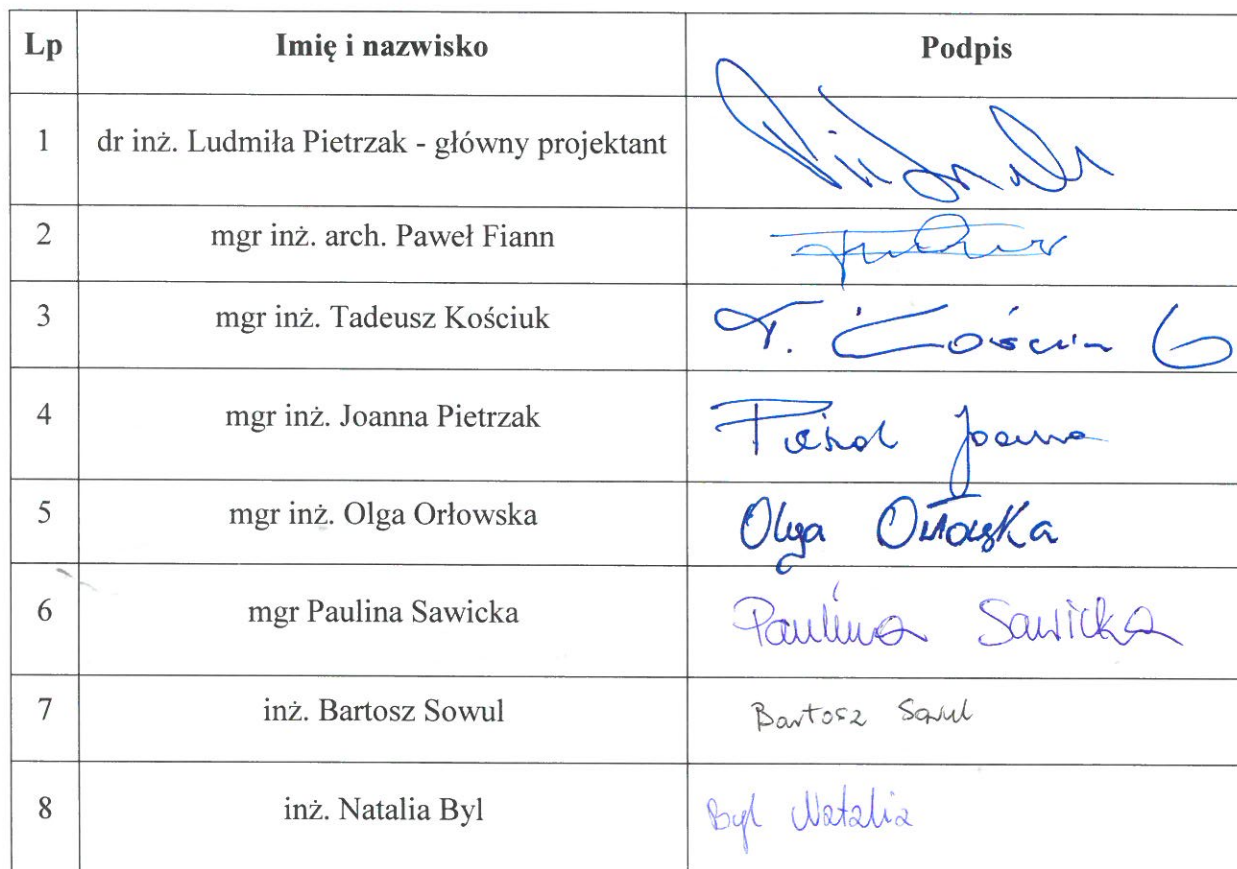 Lp Imię i nazwisko Podpis
1 dr inż. Ludmiła Pietrzak - główny projektant
2 mgr inż. arch. Paweł Fiann
3 mgr inż. Tadeusz Kościuk T. Kościuk
4 mgr inż. Joanna Pietrzak Joanna
5 mgr inż. Olga Orłowska Olga Orłowska
6 mgr Paulina Sawicka Paulina Sawicka
7 inż. Bartosz Sowul Bartosz Sowul
8 inż. Natalia Byl Byl Natalia